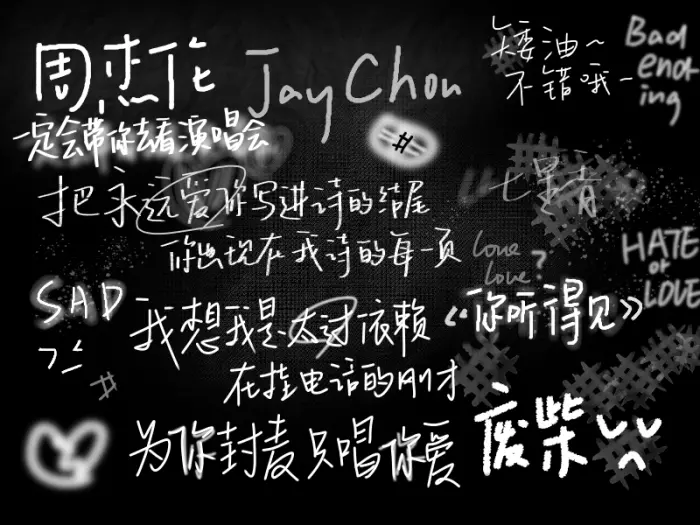 周杰伦 Jay Chou
矮油~
不错哦~
Bad
end
ing
一定会带你去看演唱会
#
把永远爱你写进诗的结尾
七星香
你出现在我诗的每一页
love
love?
HATE
or
LOVE
SAD
我想我是太过依赖
《你听得见》
#
在挂电话的刚才
为你封麦只唱你爱
废柴